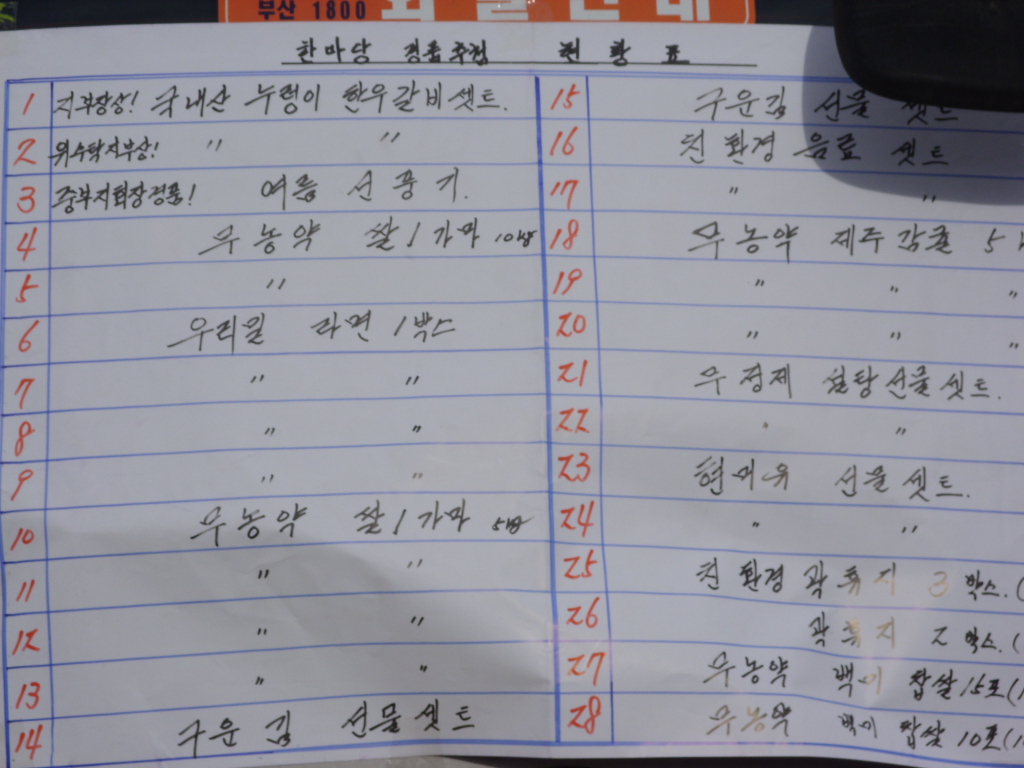 부산 1800
한마당 경품추첨 현황표
1 지부장상! 국내산 누렁이 한우갈비셋트.
2 위수탁지부상! 〃 〃
3 중부지회장경품! 여름 선풍기.
4 무농약 쌀 1가마 10kg
5 〃
6 우리밀 라면 1박스
7 〃 〃
8 〃 〃
9 〃 〃
10 무농약 쌀 1가마 5kg
11 〃 〃
12 〃 〃
13 〃 〃
14 구운김 선물셋트
15 구운김 선물 셋트
16 친환경 음료 셋트
17 〃 〃
18 무농약 제주감귤 5
19 〃 〃 〃
20 〃 〃 〃
21 무정제 설탕선물셋트.
22 〃 〃
23 현미유 선물셋트.
24 〃 〃
25 친환경 곽휴지 3박스.(
26 곽휴지 2박스.(
27 무농약 백미 찹쌀 15포(1
28 무농약 백미 찹쌀 10포(1